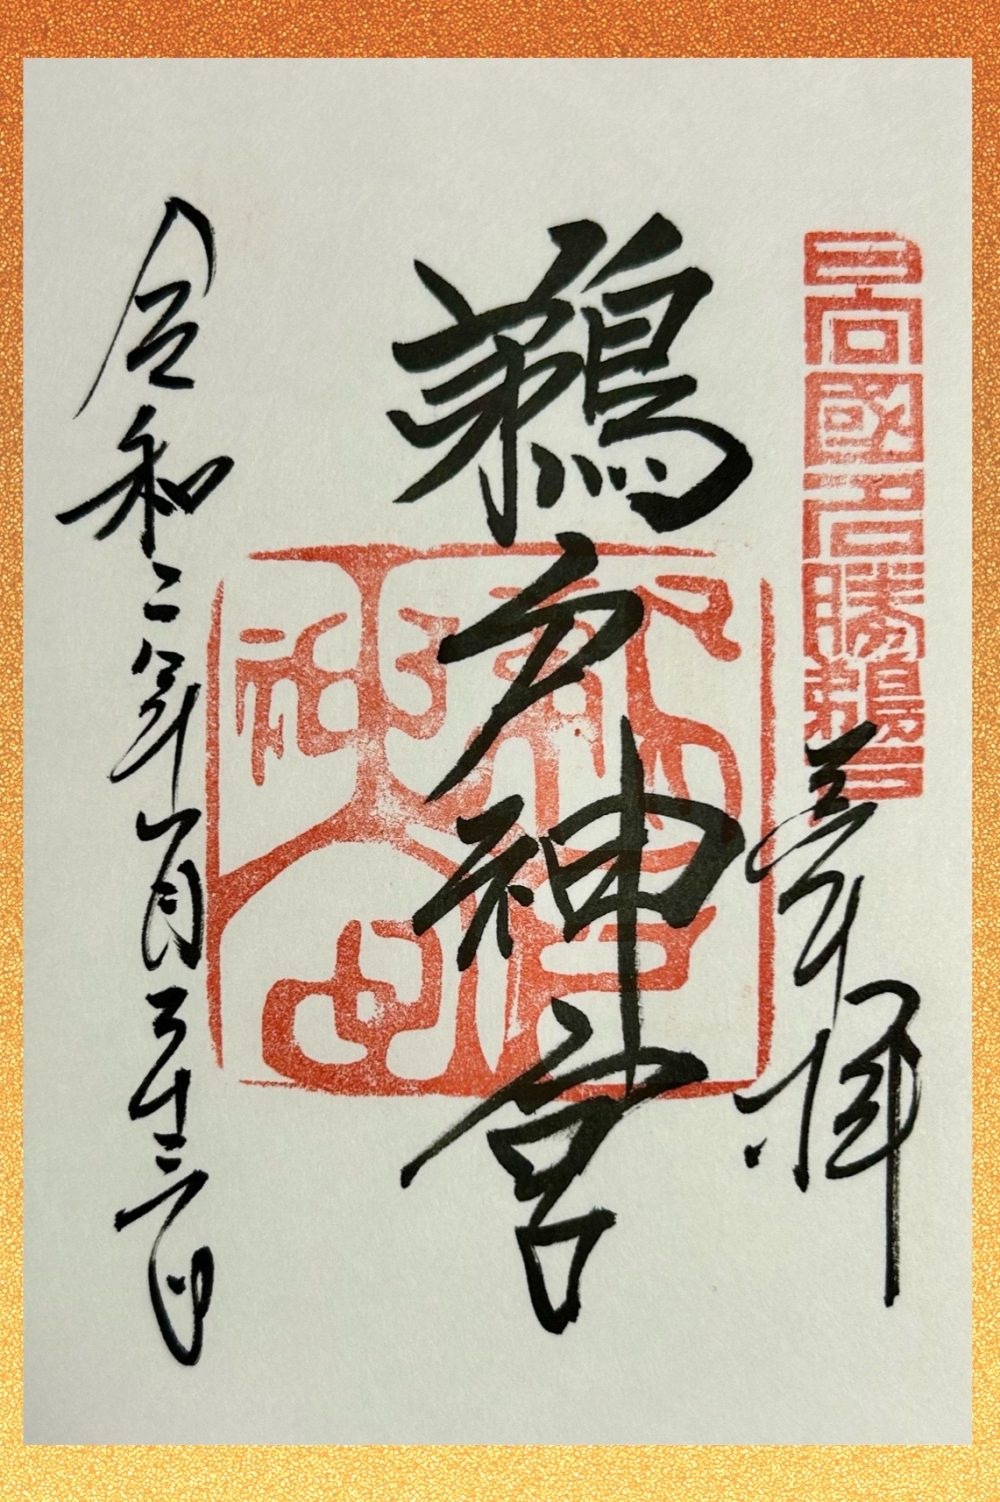 日向國名勝鵜戸
奉拝
鵜戸神宮
鵜戸神宮
令和二年一月二十三日